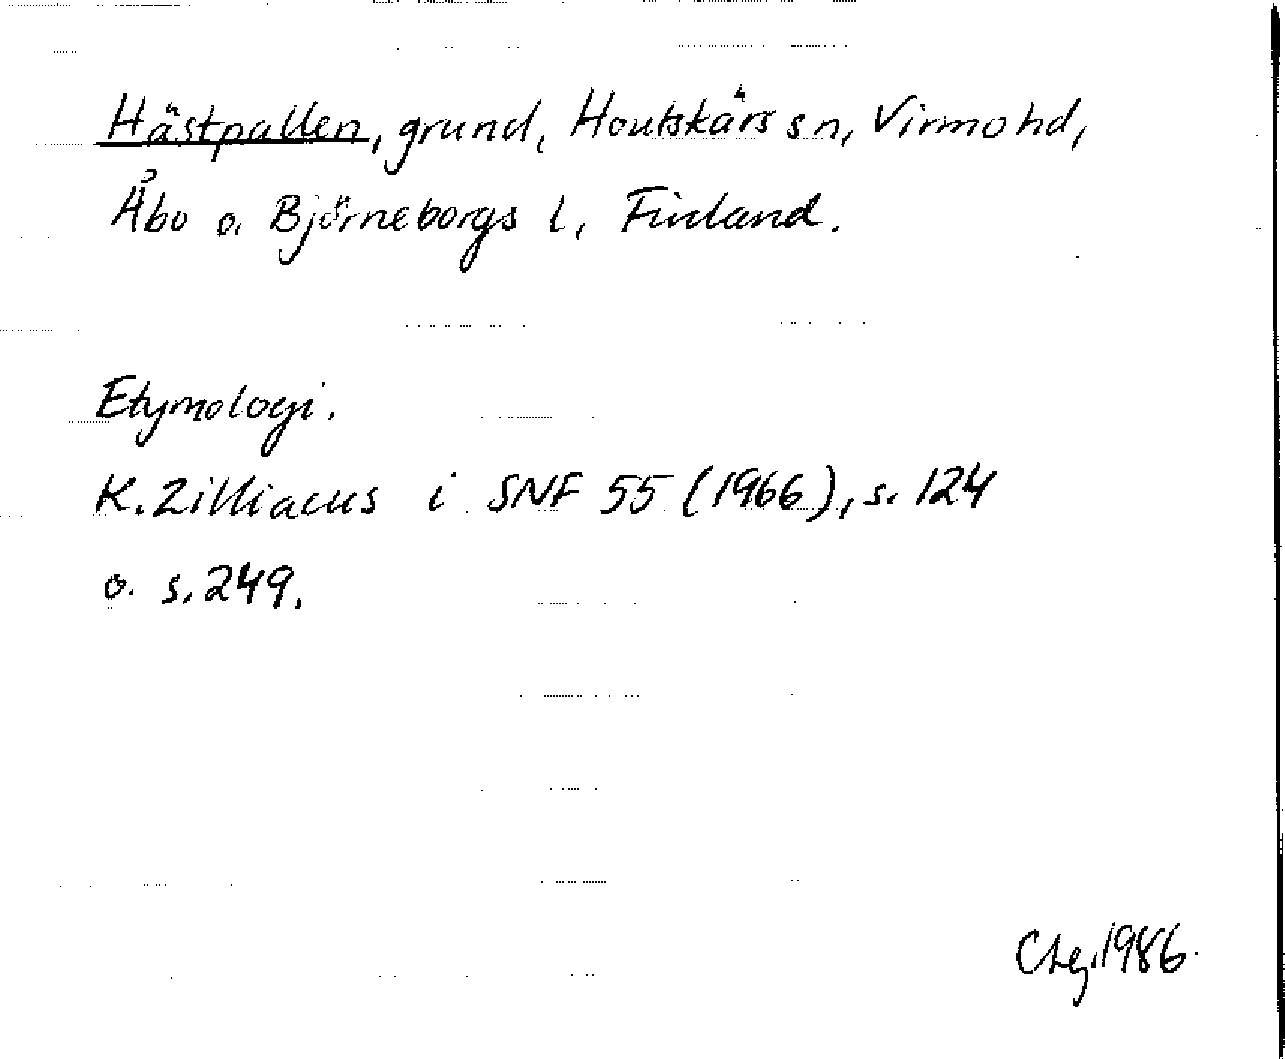 Hästpallen, grund, Houtskärs sn, Virmo hd,
Åbo o. Björneborgs l, Finland.
Etymologi.
K. Zilliacus i SNF 55 (1966), s. 124
o. s. 249.
1986.